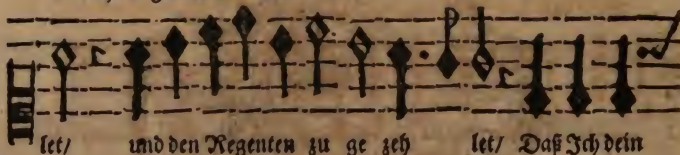 let/ und den Regenten zu ge zeh let/ Daß Ich dein